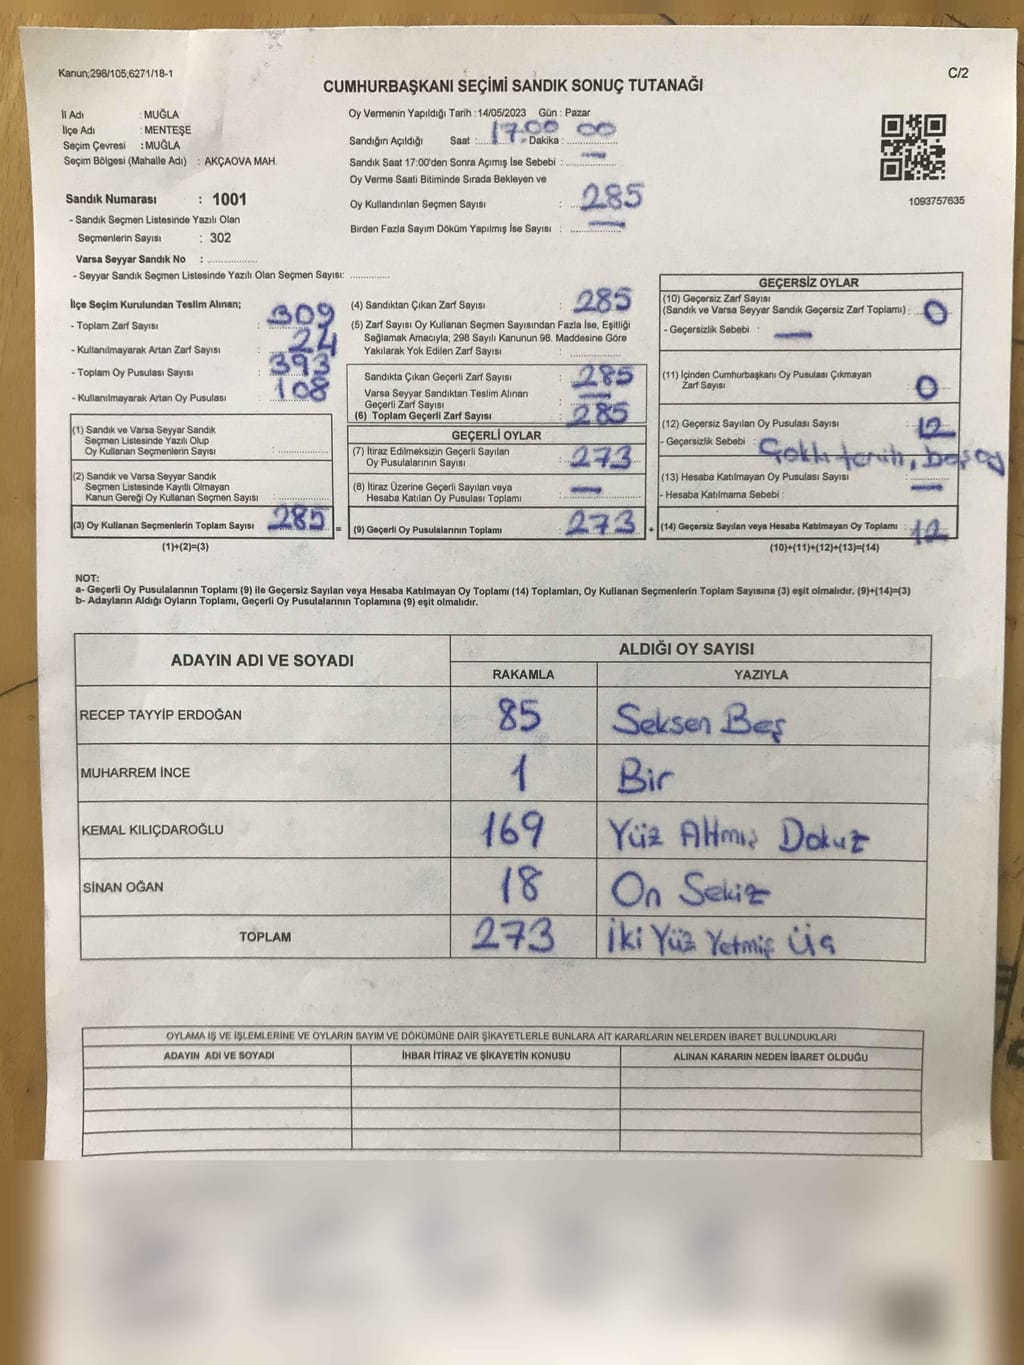 Kanun;298/105;6271/18-1
C/2
CUMHURBAŞKANI SEÇİMİ SANDIK SONUÇ TUTANAĞI
İl Adı : MUĞLA
İlçe Adı : MENTEŞE
Seçim Çevresi : MUĞLA
Seçim Bölgesi (Mahalle Adı) : AKÇAOVA MAH.
Sandık Numarası : 1001
- Sandık Seçmen Listesinde Yazılı Olan
Seçmenlerin Sayısı : 302
Varsa Seyyar Sandık No : ..............
- Seyyar Sandık Seçmen Listesinde Yazılı Olan Seçmen Sayısı: ............
Oy Vermenin Yapıldığı Tarih : 14/05/2023 Gün : Pazar
Sandığın Açıldığı Saat : 17.00 - Dakika : 00
Sandık Saat 17:00'den Sonra Açımış İse Sebebi : —
Oy Verme Saati Bitiminde Sırada Bekleyen ve
Oy Kullandırılan Seçmen Sayısı : 285
Birden Fazla Sayım Döküm Yapılmış İse Sayısı : —
1093757635
İlçe Seçim Kurulundan Teslim Alınan;
- Toplam Zarf Sayısı : 309
- Kullanılmayarak Artan Zarf Sayısı : 24
- Toplam Oy Pusulası Sayısı : 393
- Kullanılmayarak Artan Oy Pusulası : 108
(1) Sandık ve Varsa Seyyar Sandık
Seçmen Listesinde Yazılı Olup
Oy Kullanan Seçmenlerin Sayısı : ..............
(2) Sandık ve Varsa Seyyar Sandık
Seçmen Listesinde Kayıtlı Olmayan
Kanun Gereği Oy Kullanan Seçmen Sayısı : ..............
(3) Oy Kullanan Seçmenlerin Toplam Sayısı 285
(1)+(2)=(3)
(4) Sandıktan Çıkan Zarf Sayısı : 285
(5) Zarf Sayısı Oy Kullanan Seçmen Sayısından Fazla İse, Eşitliği
Sağlamak Amacıyla; 298 Sayılı Kanunun 98. Maddesine Göre
Yakılarak Yok Edilen Zarf Sayısı : ..............
Sandıkta Çıkan Geçerli Zarf Sayısı : 285
Varsa Seyyar Sandıktan Teslim Alınan
Geçerli Zarf Sayısı : —
(6) Toplam Geçerli Zarf Sayısı : 285
GEÇERLİ OYLAR
(7) İtiraz Edilmeksizin Geçerli Sayılan
Oy Pusulalarının Sayısı : 273
(8) İtiraz Üzerine Geçerli Sayılan veya
Hesaba Katılan Oy Pusulası Toplamı : —
= (9) Geçerli Oy Pusulalarının Toplamı : 273 +
GEÇERSİZ OYLAR
(10) Geçersiz Zarf Sayısı
(Sandık ve Varsa Seyyar Sandık Geçersiz Zarf Toplamı) : 0
- Geçersizlik Sebebi : —
(11) İçinden Cumhurbaşkanı Oy Pusulası Çıkmayan
Zarf Sayısı : 0
(12) Geçersiz Sayılan Oy Pusulası Sayısı : 12
- Geçersizlik Sebebi : Çoklu tercih, boş oy
(13) Hesaba Katılmayan Oy Pusulası Sayısı : —
- Hesaba Katılmama Sebebi :
(14) Geçersiz Sayılan veya Hesaba Katılmayan Oy Toplamı : 12
(10)+(11)+(12)+(13)=(14)
NOT:
a- Geçerli Oy Pusulalarının Toplamı (9) ile Geçersiz Sayılan veya Hesaba Katılmayan Oy Toplamı (14) Toplamları, Oy Kullanan Seçmenlerin Toplam Sayısına (3) eşit olmalıdır. (9)+(14)=(3)
b- Adayların Aldığı Oyların Toplamı, Geçerli Oy Pusulalarının Toplamına (9) eşit olmalıdır.
ADAYIN ADI VE SOYADI ALDIĞI OY SAYISI
RAKAMLA YAZIYLA
RECEP TAYYİP ERDOĞAN 85 Seksen Beş
MUHARREM İNCE 1 Bir
KEMAL KILIÇDAROĞLU 169 Yüz Altmış Dokuz
SİNAN OĞAN 18 On Sekiz
TOPLAM 273 İki Yüz Yetmiş Üç
OYLAMA İŞ VE İŞLEMLERİNE VE OYLARIN SAYIM VE DÖKÜMÜNE DAİR ŞİKAYETLERLE BUNLARA AİT KARARLARIN NELERDEN İBARET BULUNDUKLARI
ADAYIN ADI VE SOYADI İHBAR İTİRAZ VE ŞİKAYETİN KONUSU ALINAN KARARIN NEDEN İBARET OLDUĞU